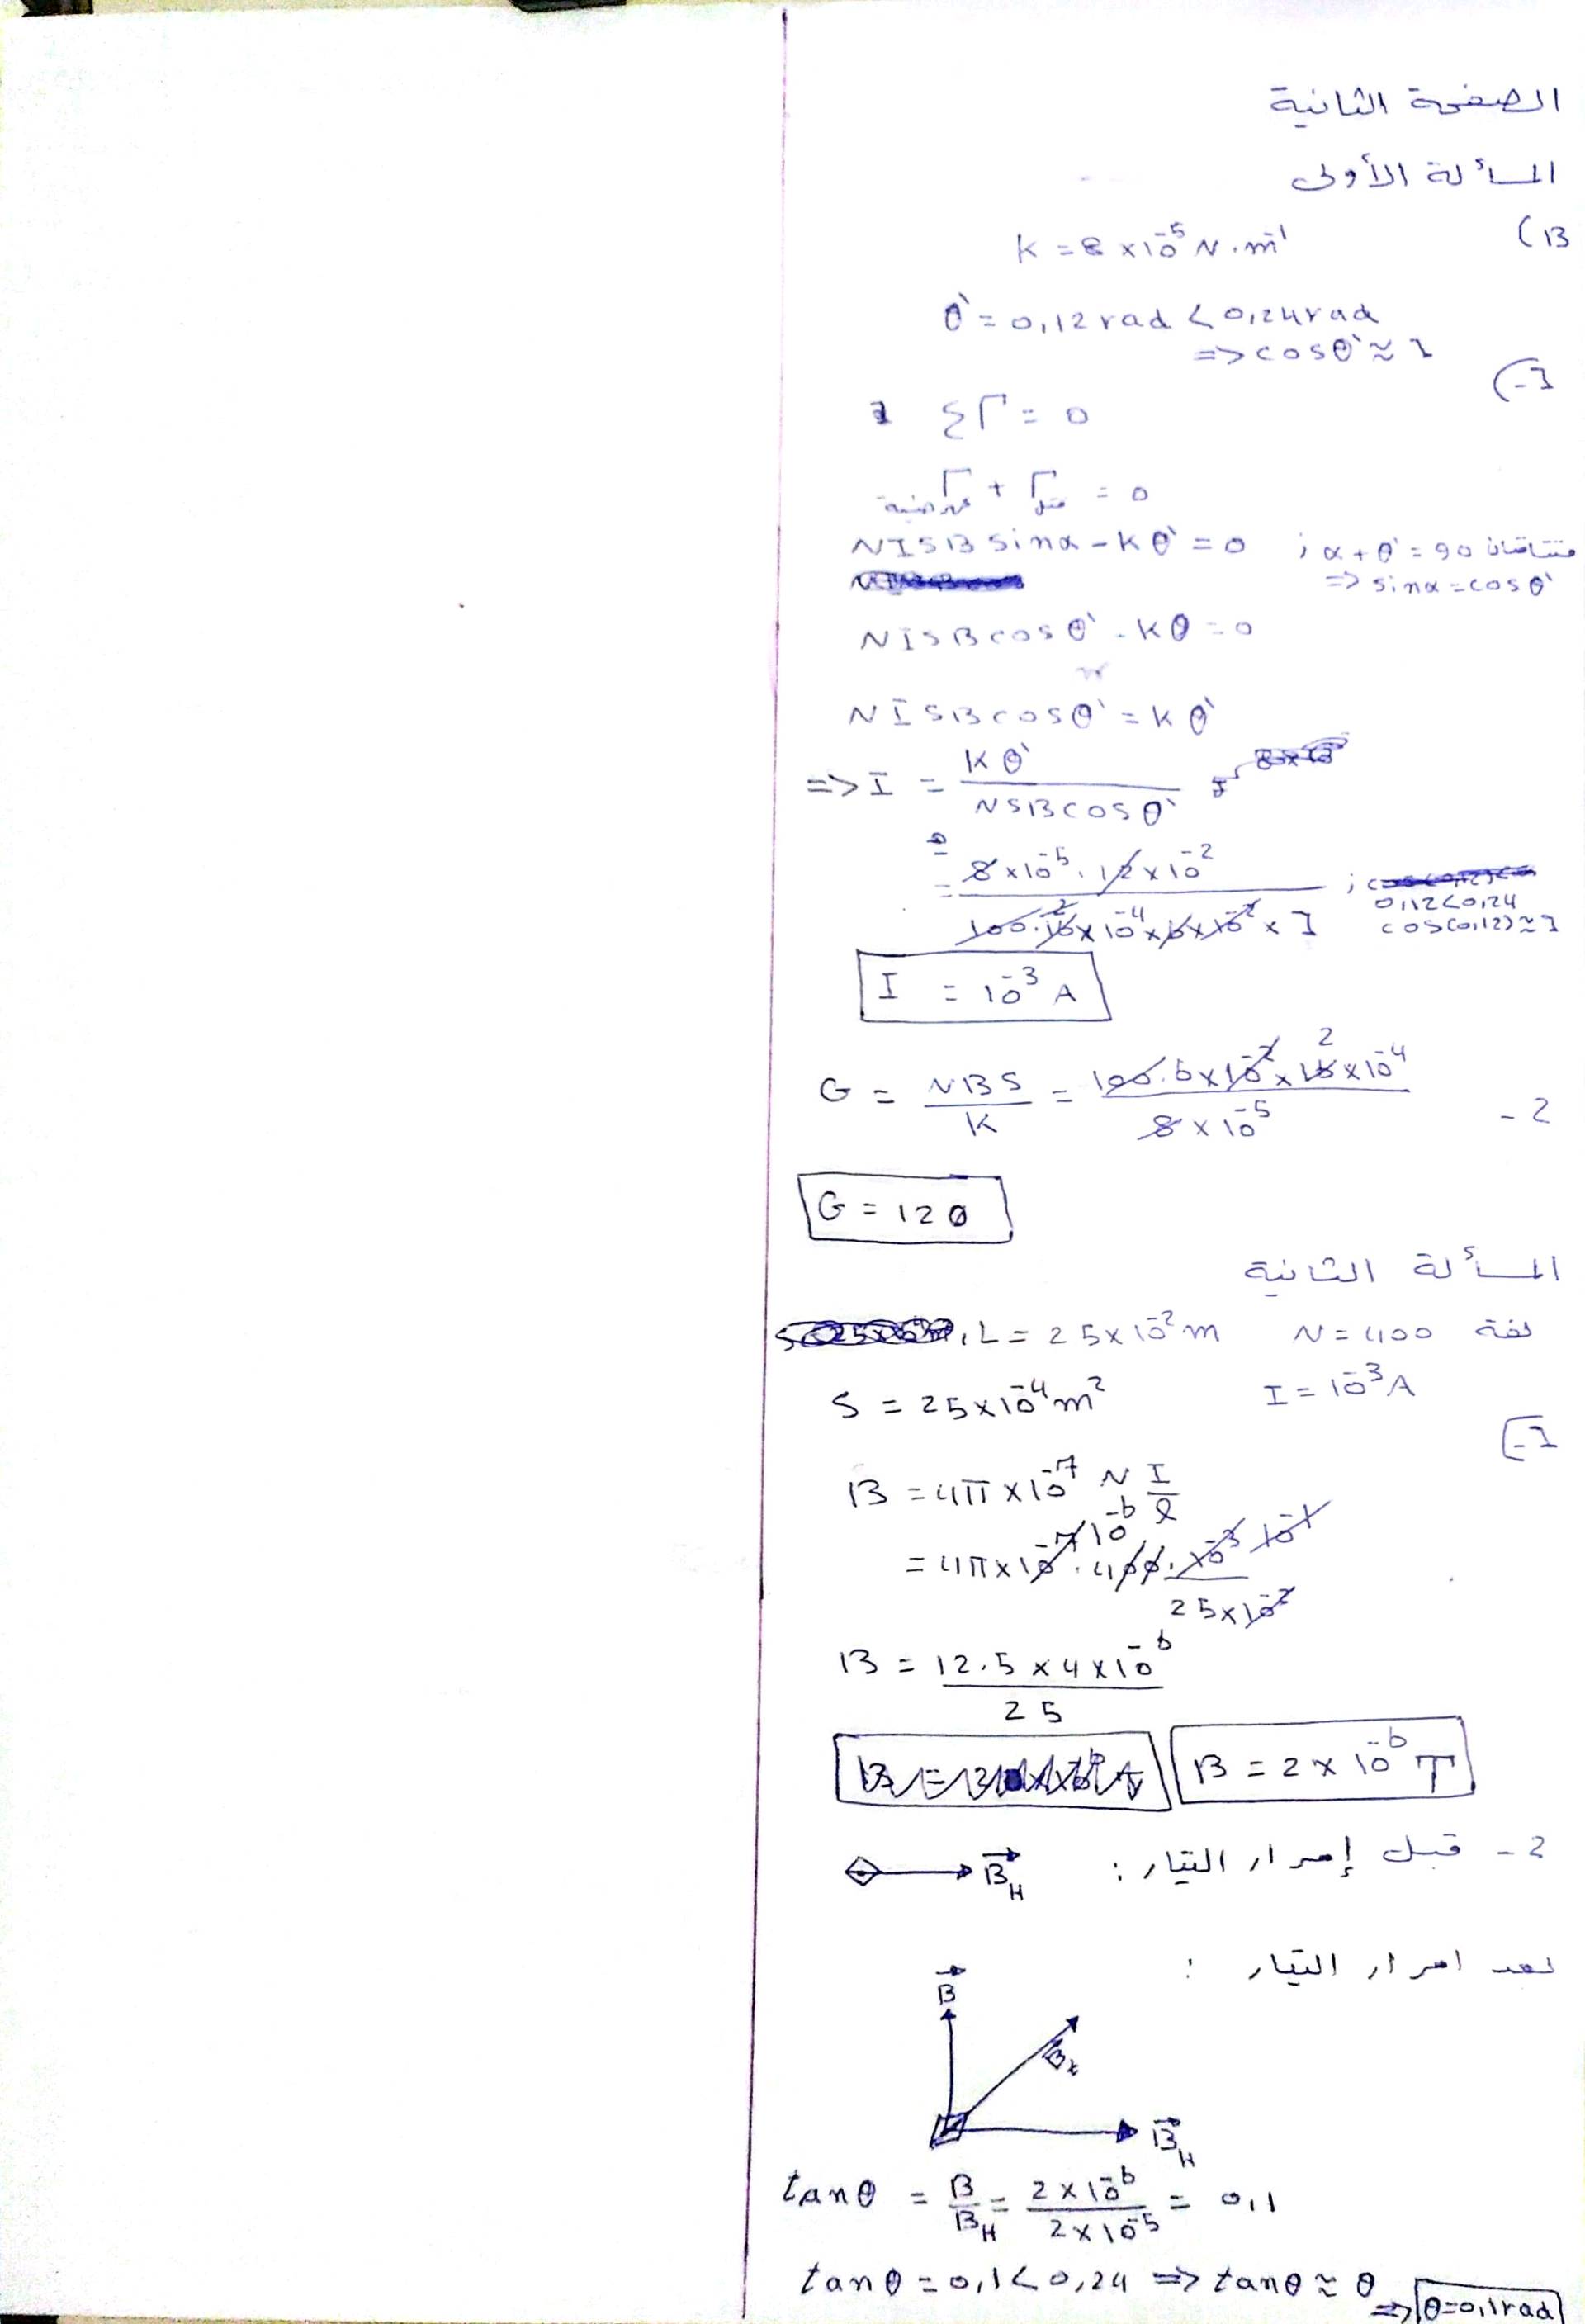 الصفحة الثانية
المسألة الأولى
B)
K = 8 × 10⁻⁵ N . m⁻¹
θ' = 0,12 rad < 0,24 rad
=> cosθ' ≈ 1
1-)
ΣΓ = 0
Γ كهرطيسية + Γ فتل = 0
NISB sinα - Kθ' = 0 ; α + θ' = 90 متتامتان
=> sinα = cosθ'
NISB cosθ' - Kθ = 0
NISB cosθ' = Kθ'
=> I = Kθ' / NSB cosθ'
= 8 × 10⁻⁵ . 12 × 10⁻² / 100 . 16 × 10⁻⁴ × 6 × 10⁻² × 1 ; 0,12 < 0,24
cos(0,12) ≈ 1
I = 10⁻³ A
2- G = NBS / K = 100 . 6 × 10⁻² × 16 × 10⁻⁴ / 8 × 10⁻⁵
G = 120
المسألة الثانية
لفة N = 400 , L = 25 × 10⁻² m
I = 10⁻³ A S = 25 × 10⁻⁴ m²
1-)
B = 4π × 10⁻⁷ N I / l
= 4π × 10⁻⁷ . 400 . 10⁻³ / 25 × 10⁻²
B = 12.5 × 4 × 10⁻⁶ / 25
B = 2 × 10⁻⁶ T
2- قبل إمرار التيار : B⃗H
بعد امرار التيار :
B⃗
B⃗t
B⃗H
tanθ = B / BH = 2 × 10⁻⁶ / 2 × 10⁻⁵ = 0,1
tanθ = 0,1 < 0,24 => tanθ ≈ θ
=> θ = 0,1 rad